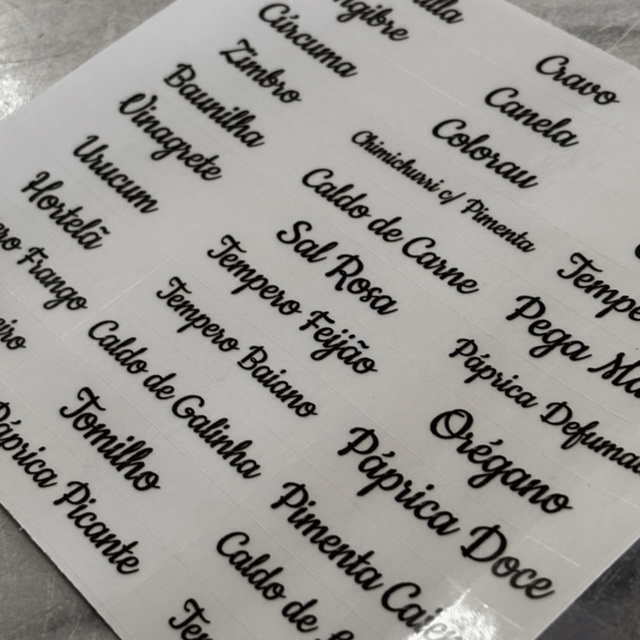 Cúrcuma
Zimbro
Baunilha
Vinagrete
Urucum
Hortelã
Frango
Cravo
Canela
Colorau
Chimichurri c/ Pimenta
Caldo de Carne
Sal Rosa
Tempero Feijão
Tempero Baiano
Caldo de Galinha
Tomilho
Páprica Picante
Pega
Páprica
Orégano
Páprica Doce
Pimenta
Caldo de